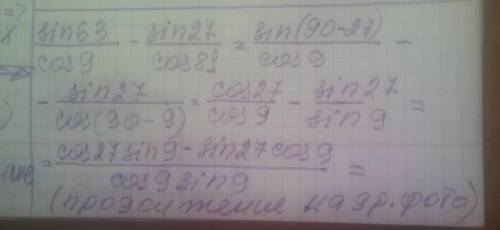 =>
x sin63/cos9 - sin27/cos81 = sin(90-27)/cos9 -
) - sin27/cos(90-9) = cos27/cos9 - sin27/sin9 =
= cos27sin9-sin27cos9/cos9sin9 =
(продолжение на др. фото)